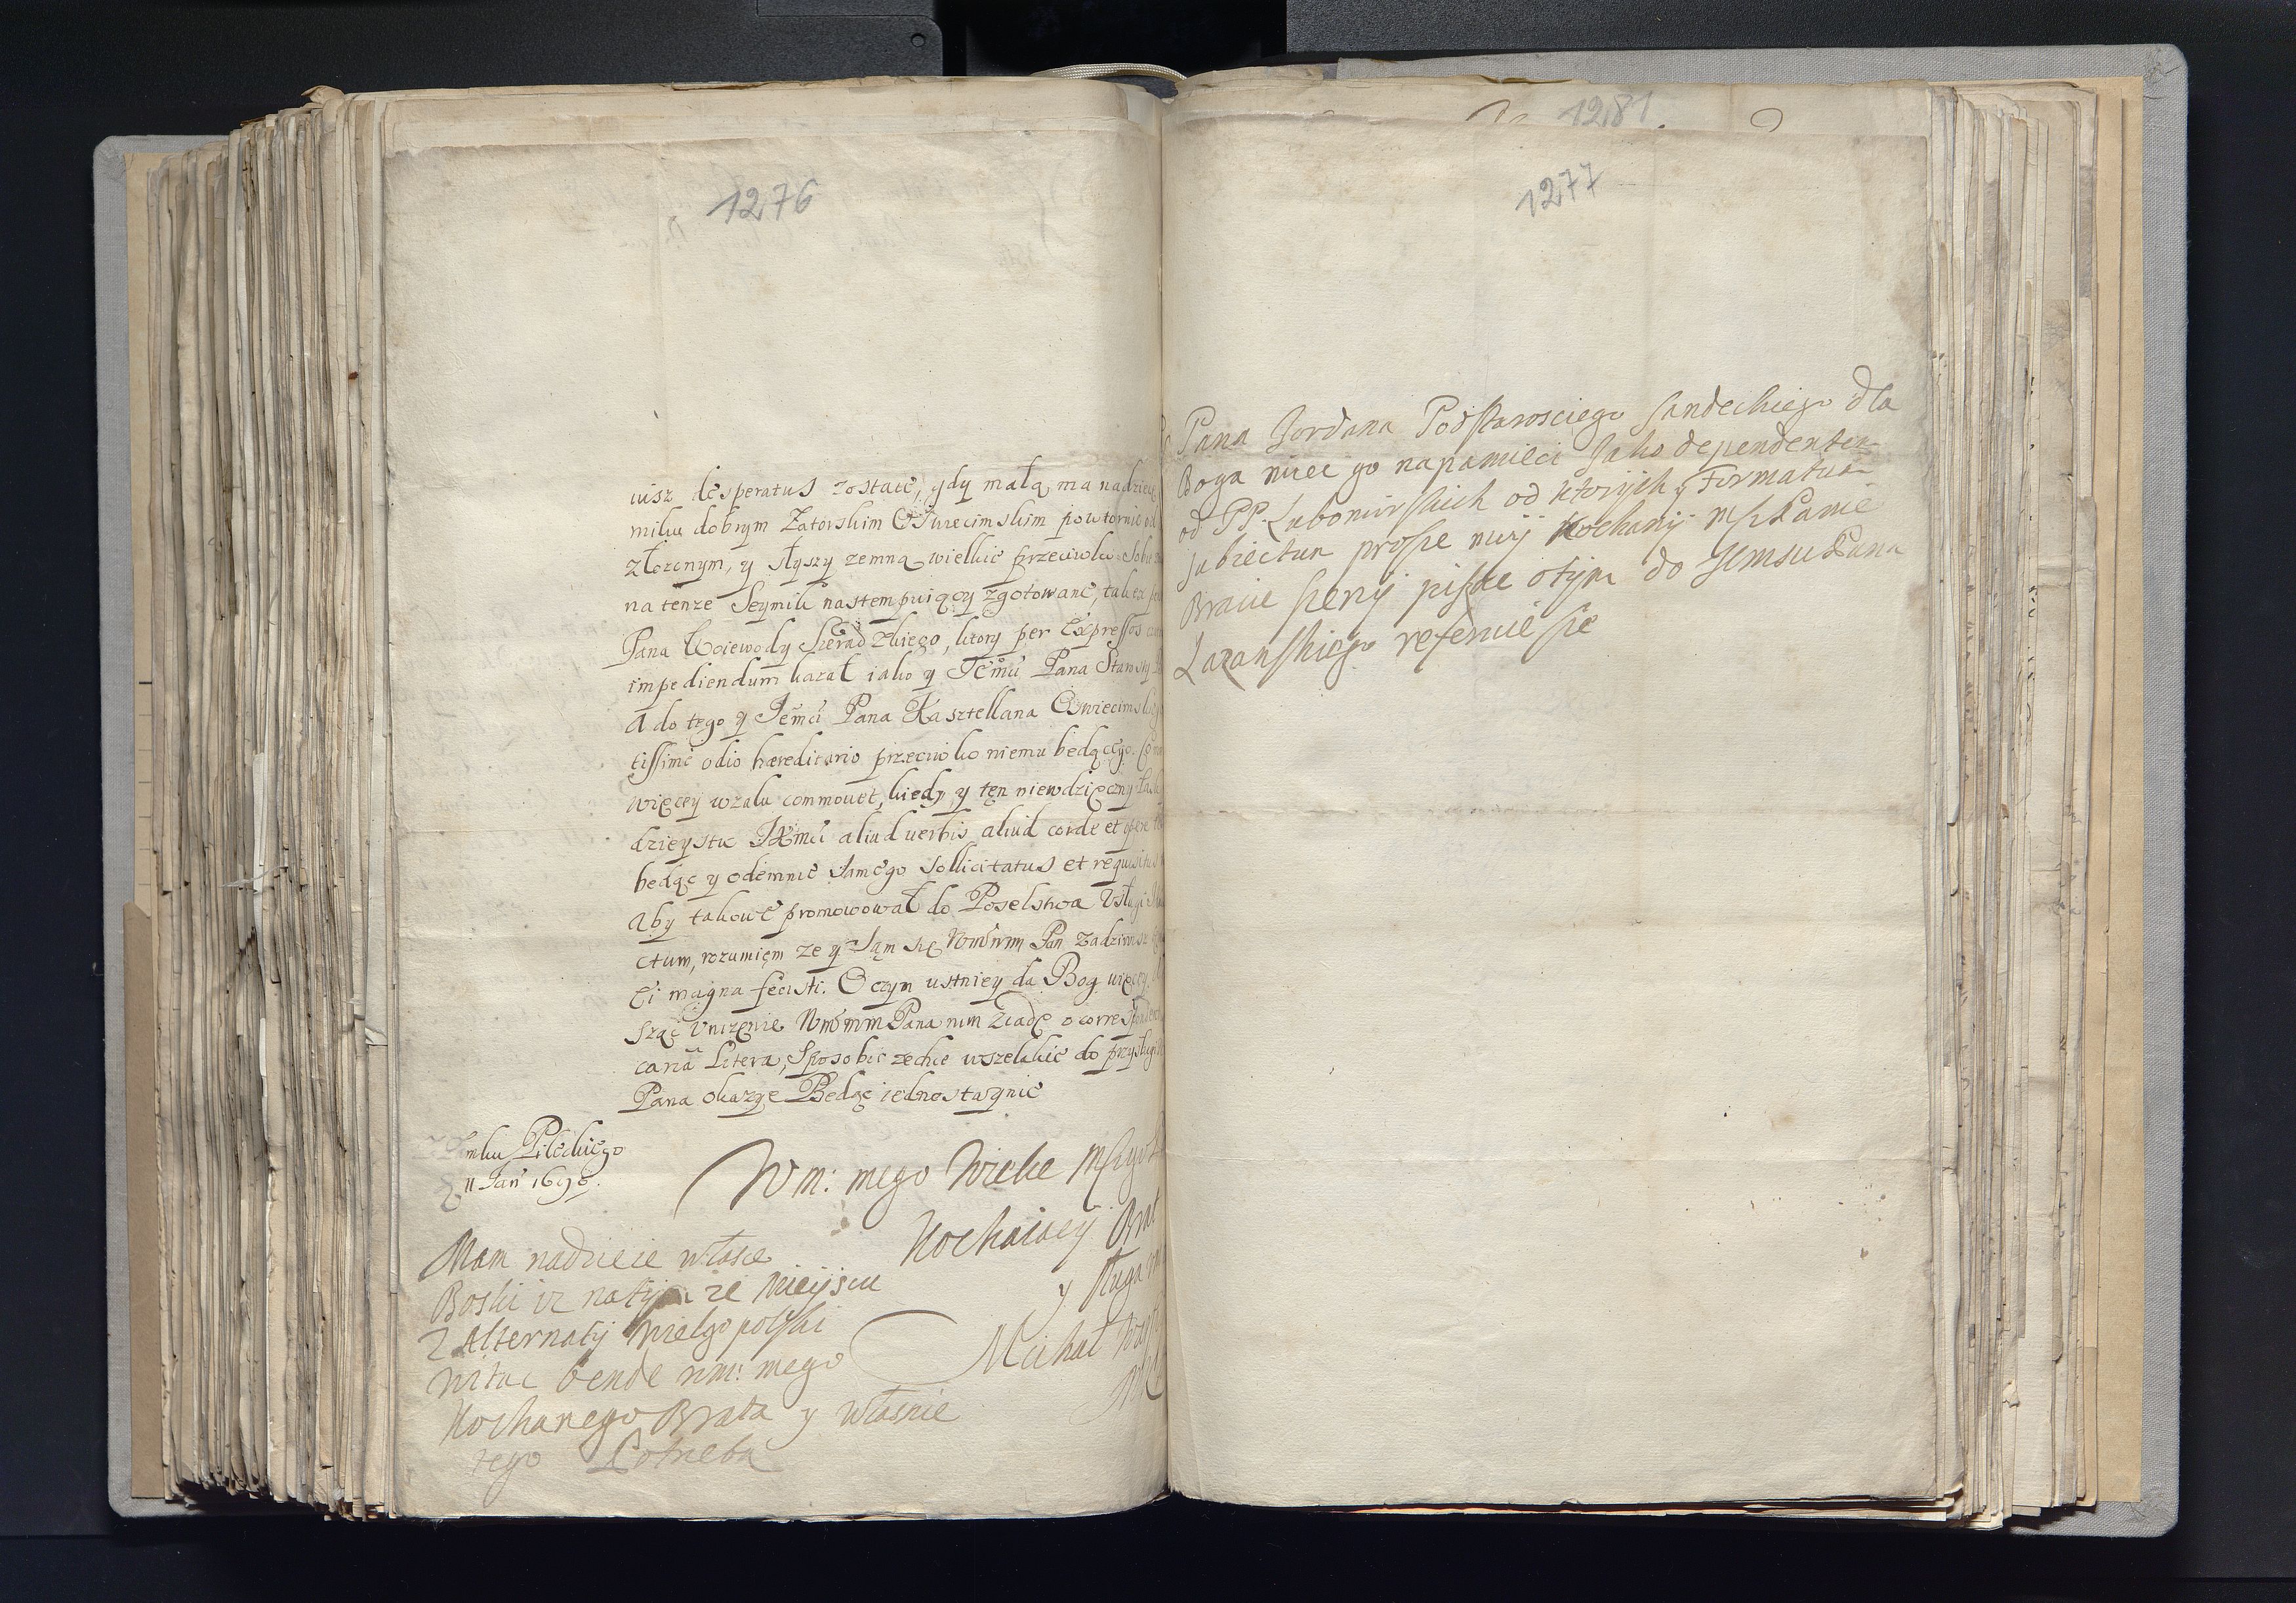 1276
iusz desperatus zostaie, gdy małą ma nadzieię
miku dobrym Zatorskim Oswiecimskim powtornie
złozonym, y słyszy zemną wielkie przeciwko Sobie
na tenze Seymik nastempuiący zgotowane, tak ex
Pana Woiewody Sieradzkiego, ktory per Expressos
impediendum kazał iako y Jemci Pana Starosty
a do tego y Jemci Pana Kasztellana Oswiecimskiego
tissime odio hæreditario przeciwko niemu będącego.
więcey wzalu commouet, kiedy y ten niewdzięczny
dzieystu Jxmci aliud uerbis aliud corde et opere
będąc y odemnie Samego Sollicitatus et requisitus
aby takowe promowował do Poselstwa Usługi
ctum, rozumiem ze y Sam się Wmmm Pan zadziwisz
Ei magna fecisti. O czym ustniey da Bog więcey
sząc Unizenie Wmmm Pana nim Ziadę o corresponden
caria Litera, Sposobic zechce wszelkie do przysługi
Pana okazye Będąc iednostaynie
mku Pileckiego
11 Jan 1698.
Wm: mego Wielce Mszgo
Kochaiący Brat
y sługa
Michał
Mam nadzieie własce
Boski iz natym ze Mieyscu
z Alternaty Wielgopolski
witac bende wm: mego
Kochanego Brata y własnie
tego Potrzeba
1281
1277
Pana Jordana Podstarosciego Sandeckiego dla
Boga miec go napamieci Jako dependentem
od PP. Lubomirskich od ktorych y Formatur
subiectum prosze moy Kochany Mszy Panie
Bracie szerzy pisze otym do Jemsci Pana
Lazanskiego referuie sie